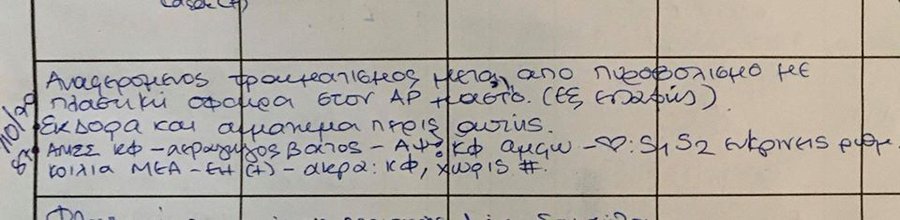 Αναφερόμενος τραυματισμός μετά από πυροβολισμό με
πλαστική σφαίρα στον ΑΡ μαστό. (εξ επαφής).
Εκδορά και αιμάτωμα πέριξ αυτής.
ΑΜΣΣ ΚΦ - αεραγωγός βατός - ΑΨ: ΚΦ άμφω - ♡: S1 S2 ευκρινείς ρυθμ.
κοιλία ΜΕΑ - ΕΗ (+) - άκρα: ΚΦ, χωρίς #.